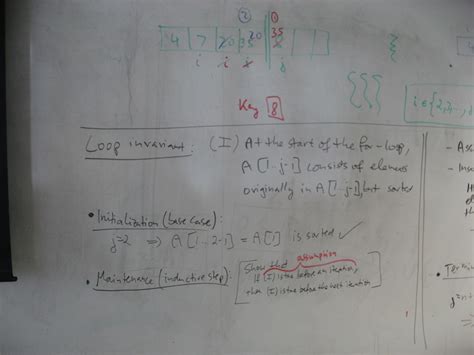 ② ①
4 7 20 35 20 35
i i j
Key 8
i ∈ {2,3..,
Loop invariant: (I) At the start of the for-loop,
A[1..j-1] consists of elements
originally in A[1..j-1], but sorted
• Initialization (base case):
j=2 ⟹ A[1...2-1] = A[1] is sorted ✓
• Maintenance (inductive step):
Show that assumption
If (I) is true before an iteration,
then (I) is true before the next iteration